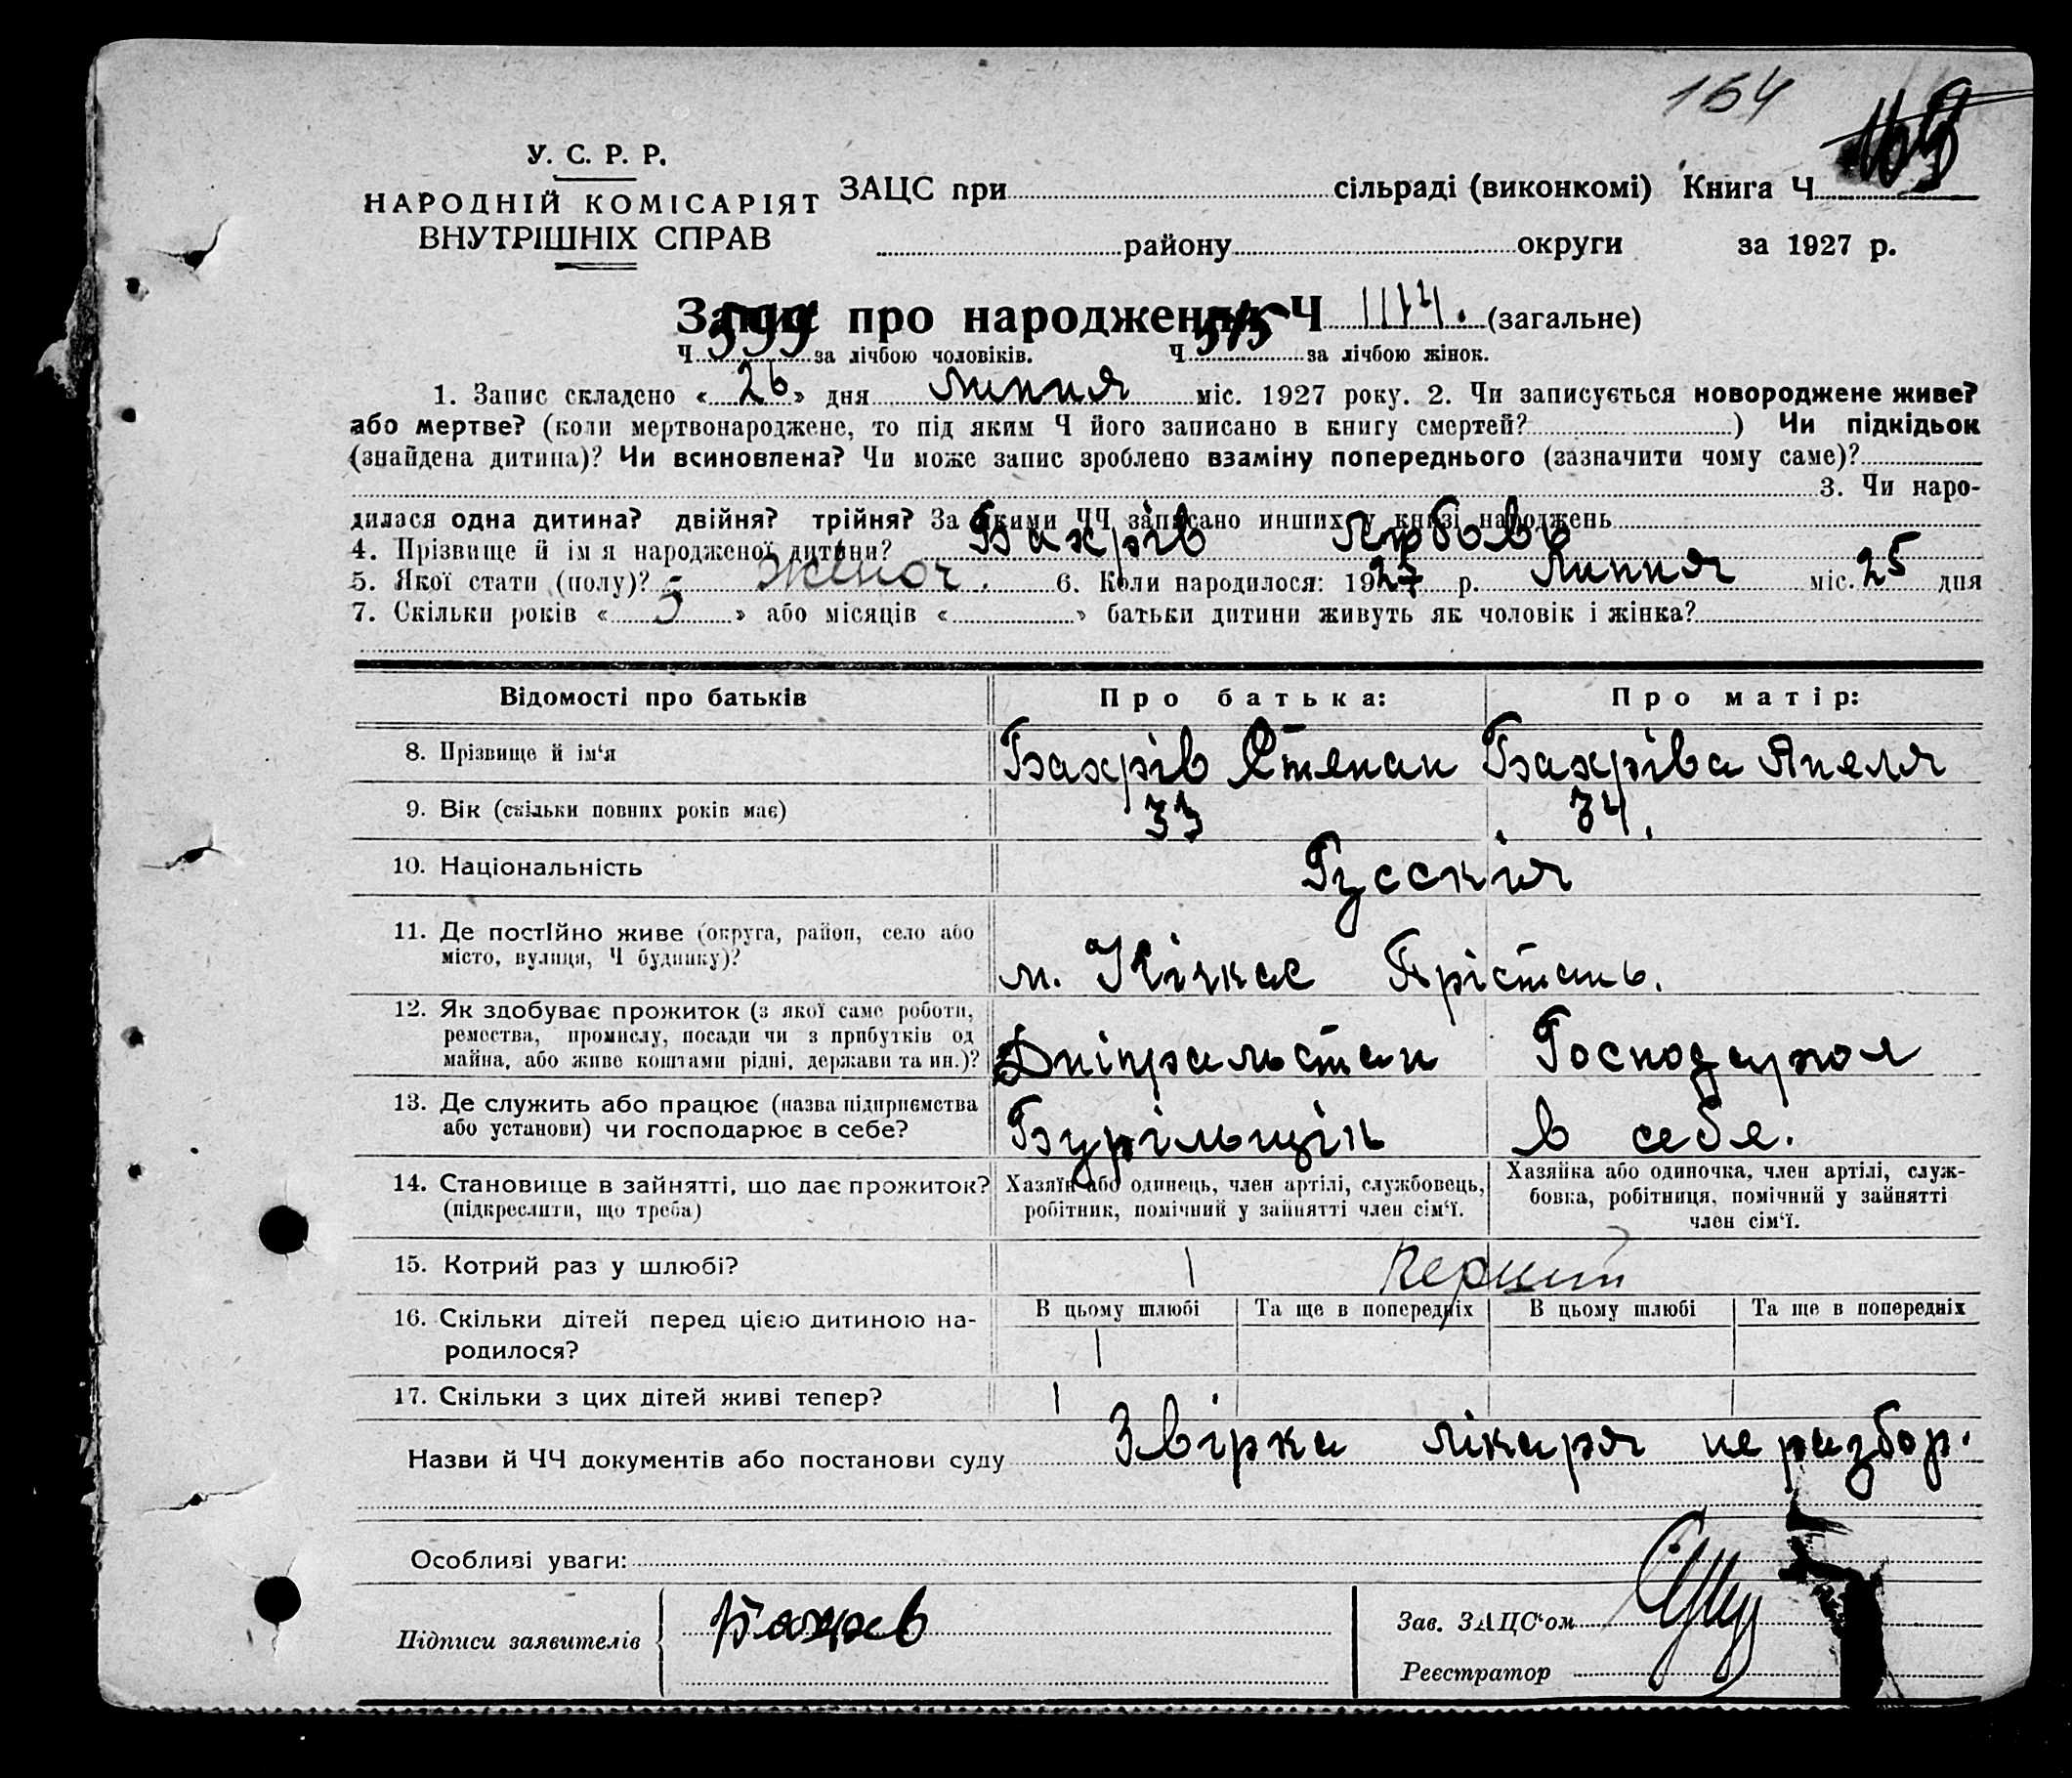 164
У. С. Р. Р.
НАРОДНІЙ КОМІСАРІЯТ
ВНУТРІШНІХ СПРАВ
ЗАЦС при сільраді (виконкомі) Книга Ч
району округи за 1927 р.
Запис про народження Ч 1174. (загальне)
Ч 599 за лічбою чоловіків. Ч 575 за лічбою жінок.
1. Запис складено « 26 » дня липня міс. 1927 року. 2. Чи записується новороджене живе?
або мертве? (коли мертвонароджене, то під яким Ч його записано в книгу смертей? ) Чи підкідьок
(знайдена дитина)? Чи всиновлена? Чи може запис зроблено взаміну попереднього (зазначити чому саме)?
3. Чи наро-
дилася одна дитина? двійня? трійня? За якими ЧЧ записано инших у книзі народжень
4. Прізвище й ім я народженої дитини? Бахрів Любовь
5. Якої стати (полу)? женоч. 6. Коли народилося: 1927 р. липня міс. 25 дня
7. Скільки років « 5 » або місяців « » батьки дитини живуть як чоловік і жінка?
Відомості про батьків Про батька: Про матір:
8. Прізвище й ім‘я Бахрів Степан Бахріва Анеля
9. Вік (скільки повних років має) 33 34.
10. Національність Русскія
11. Де постійно живе (округа, район, село або
місто, вулиця, Ч будинку)? м. Кічкас Прістань.
12. Як здобуває прожиток (з якої саме роботи,
ремества, промислу, посади чи з прибутків од
майна, або живе коштами рідні, держави та ин.)? Дніпрельстан Господарюя
13. Де служить або працює (назва підприємства
або установи) чи господарює в себе? Бурільщік в себе.
14. Становище в зайнятті, що дає прожиток?
(підкреслити, що треба)
Хазяїн або одинець, член артілі, службовець,
робітник, помічний у зайнятті член сім‘ї.
Хазяйка або одиночка, член артілі, служ-
бовка, робітниця, помічний у зайнятті
член сім‘ї.
15. Котрий раз у шлюбі? 1 Перший
16. Скільки дітей перед цією дитиною на-
родилося?
В цьому шлюбі Та ще в попередніх В цьому шлюбі Та ще в попередніх
1
17. Скільки з цих дітей живі тепер? 1
Назви й ЧЧ документів або постанови суду Звірка лікаря не разбор.
Особливі уваги:
Підписи заявителів Бахрев
Зав. ЗАЦС‘ом
Реєстратор